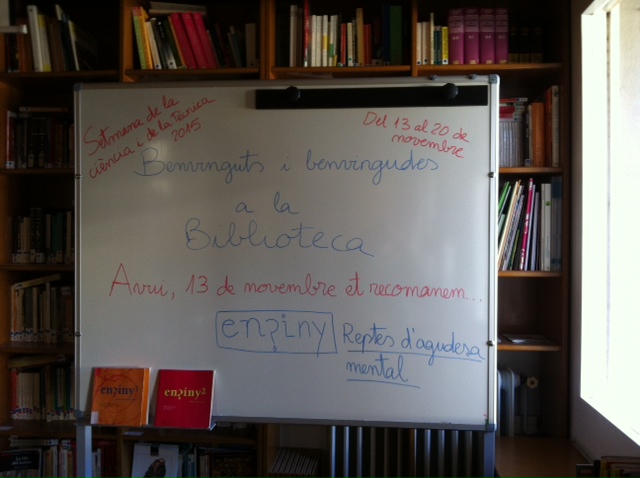 Setmana de la
ciència i de la Tècnica
2015
Del 13 al 20 de
novembre
Benvinguts i benvingudes
a la
Biblioteca
Avui, 13 de novembre et recomanem...
en?iny
Reptes d'agudesa
mental
en?iny
en?iny2